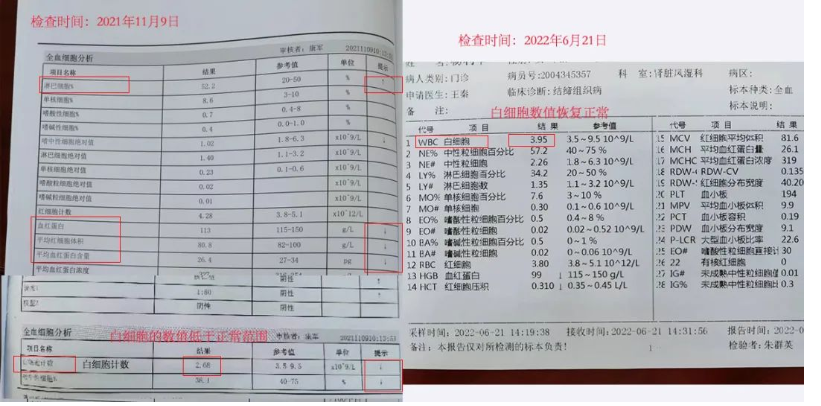 检查时间：2021年11月9日
全血细胞分析
审核者：
项目名称 结果 参考值 单位 提示
淋巴细胞% 52.2 20-50 % ↑
单核细胞% 8.6 3-10 %
嗜酸性细胞% 0.7 0.4-8 %
嗜碱性细胞% 0.4 0.0-1.0 %
中性细胞绝对值 1.02 1.8-6.3 x10^9/L ↓
淋巴细胞绝对值 1.40 1.1-3.2 x10^9/L
单核细胞绝对值 0.23 0.1-0.6 x10^9/L
嗜酸粒细胞绝对值 0.02 x10^9/L
嗜碱粒细胞绝对值 0.01 x10^9/L
红细胞计数 4.28 3.8-5.1 x10^12/L
血红蛋白 113 115-150 g/L ↓
平均红细胞体积 80.8 82-100 ↓
平均血红蛋白含量 26.4 27-34 pg ↓
平均血红蛋白浓度
阴性
1:80 阴性 ↑
阴性 阴性
全血细胞分析
白细胞的数值低于正常范围
审核者：
项目名称 结果 参考值 单位 提示
白细胞计数 2.68 3.5-9.5 x10^9/L ↓
58.1 40-75 % ↓
检查时间：2022年6月21日
病人类别：门诊 病员号：2004345357 科 室：肾脏风湿科 病区：
申请医生：王秦 临床诊断：结缔组织病 标本种类：全血
备 注： 标本说明：
白细胞数值恢复正常
代号 项 目 结 果 参考值
1 WBC 白细胞 3.95 3.5~9.5 10^9/L
2 NE% 中性粒细胞百分比 57.2 40~75 %
3 NE# 中性粒细胞 2.26 1.8~6.3 10^9/L
4 LY% 淋巴细胞百分比 34.2 20~50 %
5 LY# 淋巴细胞数 1.35 1.1~3.2 10^9/L
6 MO% 单核细胞百分比 7.6 3~10 %
7 MO# 单核细胞 0.30 0.1~0.6 10^9/L
8 EO% 嗜酸性粒细胞百分比 0.5 0.4~8 %
9 EO# 嗜酸性粒细胞 0.02 0.02~0.52 10^9/L
10 BA% 嗜碱性粒细胞百分比 0.5 0~1 %
11 BA# 嗜碱性粒细胞 0.02 0~0.06 10^9/L
12 RBC 红细胞 3.80 3.8~5.1 10^12/L
13 HGB 血红蛋白 99 ↓ 115~150 g/L
14 HCT 红细胞压积 0.310 ↓ 0.35~0.45 L/L
代号 项 目 结 果
15 MCV 红细胞平均体积 81.6
16 MCH 平均血红蛋白量 26.1
17 MCHC 平均血红蛋白浓度 319
18 RDW-CV 0.135
19 RDW- 红细胞分布宽度 40.20
20 PLT 血小板 194
21 MPV 平均血小板体积 9.9
22 PCT 血小板容积 0.19
23 PDW 血小板分布宽度 9.1
24 P-LCR 大型血小板比率 22.6
25 EO# 嗜酸性粒细胞直接计 30
26 22 有核红细胞 0
27 IG# 未成熟中性粒细胞值 0.01
28 IG% 未成熟中性粒细胞比 0.3
采样时间：2022-06-21 14:19:38 接收时间：2022-06-21 14:31:56 报告时间：2022-0
备注：本报告仅对所检测的标本负责！ 检验者：朱群英